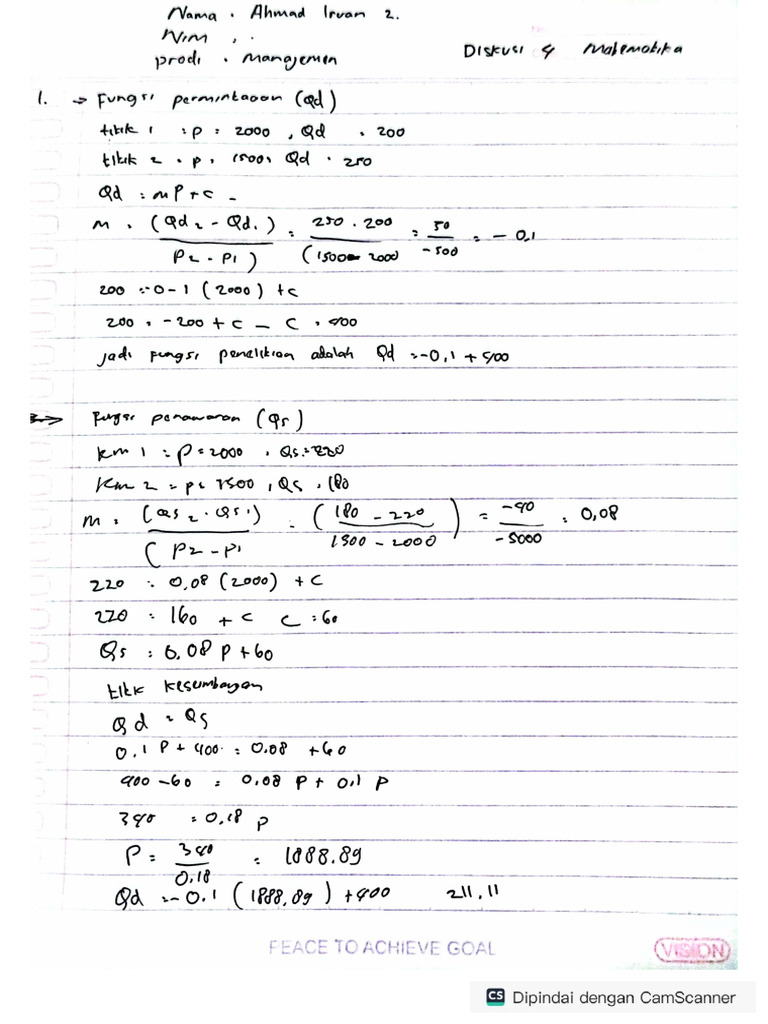 Nama . Ahmad Irvan Z.
NIM . .
prodi . Manajemen
Diskusi 4 Matematika
1. → Fungsi permintaaan (Qd)
titik 1 : P = 2000 , Qd . 200
titik 2 . P . 1500, Qd . 250
Qd : mP + C -
m . (Qd2 - Qd1) / P2 - P1) = 250 . 200 / (1500 - 2000) = 50 / -500 = - 0,1
200 = 0-1 (2000) + C
200 . -200 + C - C . 400
jadi Fungsi adalah Qd = -0,1 + 400
→ Fungsi penawaran (Qs)
km 1 : P = 2000 , Qs = 220
Km 2 = P = 1500 , Qs . 180
m . (Qs2 . Qs1) / (P2 - P1 - (180 - 220 / 1500 - 2000) = -40 / -5000 . 0,08
220 : 0,08 (2000) + C
220 : 160 + C C : 60
Qs : 0,08 P + 60
titik kesumbangan
Qd = Qs
0.1 P + 400 = 0.08 + 60
400 - 60 = 0,08 P + 0,1 P
340 = 0,18 P
P = 340 / 0,18 = 1888.89
Qd = -0.1 (1888,89) + 400 211,11
PEACE TO ACHIEVE GOAL
VISION
CS Dipindai dengan CamScanner